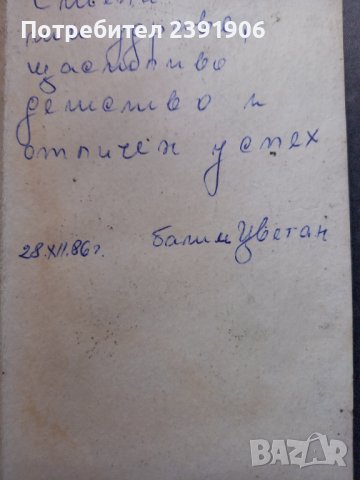 Потребител 2391906
здраве,
щастливо
детство и
отличен успех
28.XII.86 г. батим Цветан
BAZAR